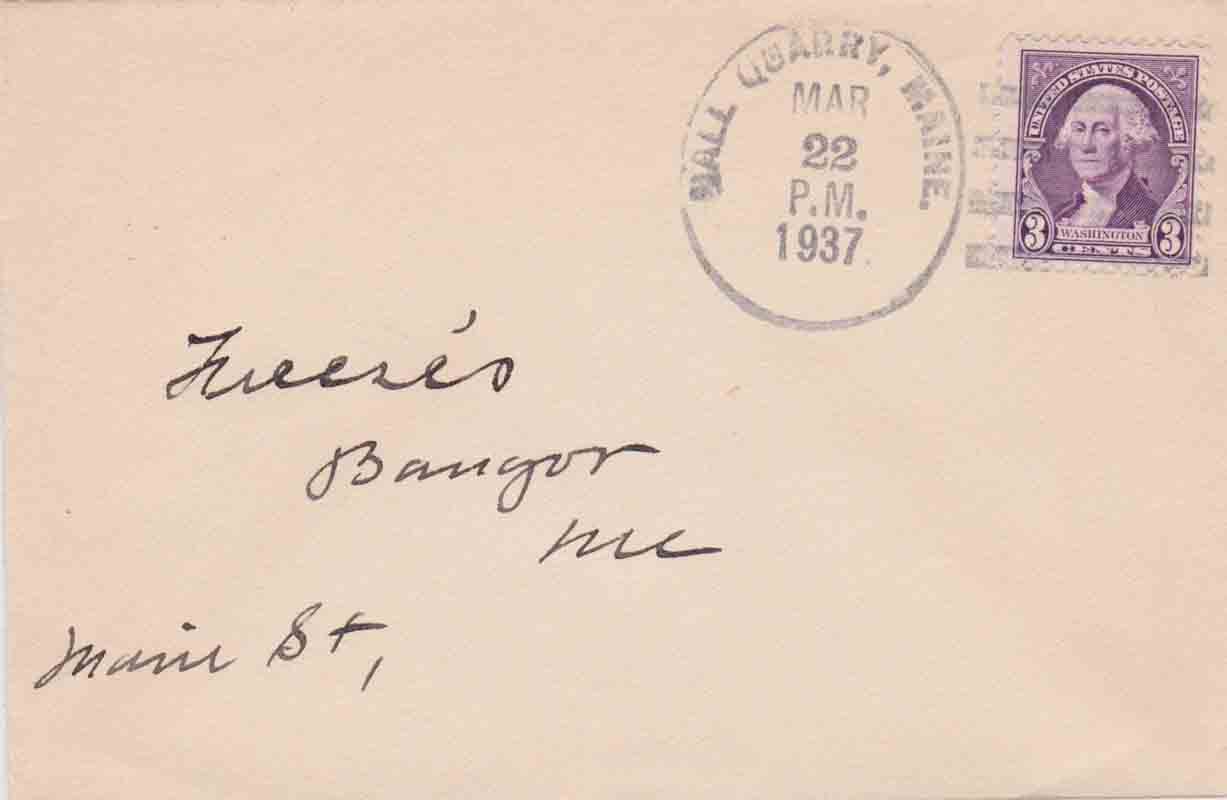 HALL QUARRY, MAINE.
MAR
22
P.M.
1937.
UNITED STATES POSTAGE
3 WASHINGTON 3
CENTS
Freese's
Bangor
Me
Main St,